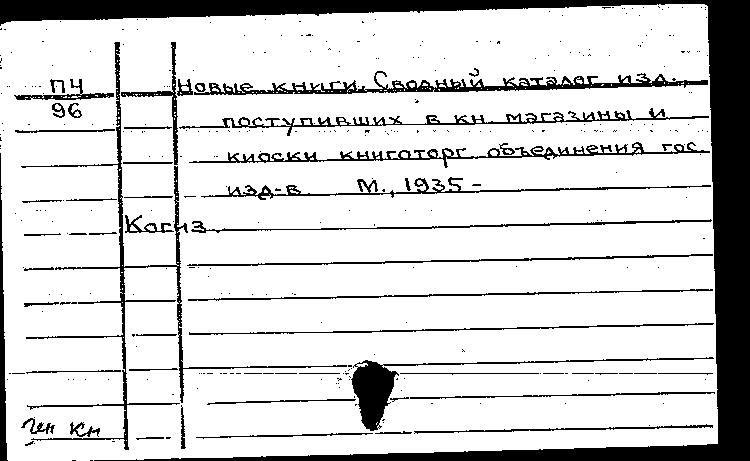 ПЧ
96
Новые книги. Сводный каталог изд.,
поступивших в кн. магазины и
киоски книготорг. объединения гос.
изд-в. М., 1935 -
Когиз.
Ген кн